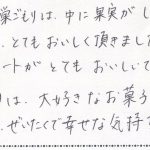 巣ごもりは、中に果実がし
、とてもおいしく頂きました
ートがとてもおいしいで
りは、大好きなお菓子
、ぜいたくで幸せな気持